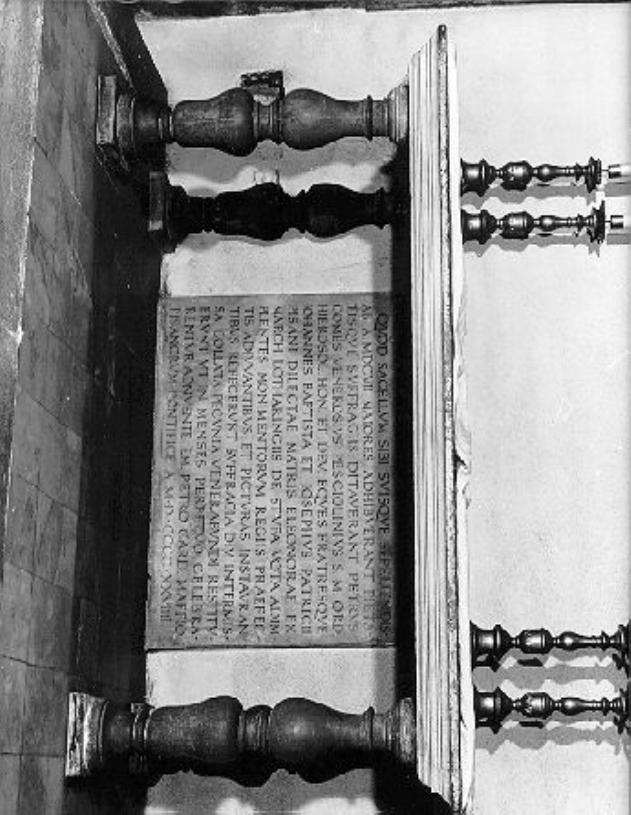 QVOD SACELLVM SIBI SVISQVE SEPELIENDIS
AB A. MDCVII MAIORES ADHIBVERANT PIETA
TISQVE SVFFRAGIIS DITAVERANT PETRVS
COMES VENEROSIVS PESCIOLINIVS S. M. ORD
HIEROSO. HON. ET DEV. EQVES FRATRESQVE
IOHANNES BAPTISTA ET IOSEPHVS PATRICII
PISANI DILECTAE MATRIS ELEONORAE EX
MARCH. LOTHARINGIIS DE STVFA VOTA ADIM
PLENTES MONVMENTORVM REGIIS PRAEFEC
TIS ADIVVANTIBVS ET PICTVRAS INSTAVRAN
TIBVS REFECERVNT SVFFRAGIA DIV INTERMIS
SA COLLATA PECVNIA VENERABVNDI RESTITV
ERVNT VT IN MENSES PERPETVO CELEBRA
RENTVR ADNVENTE EM. PETRO CARD. MAFFIO
PISANORVM PONTIFICE A. M. D. CCCC. XXVIIII